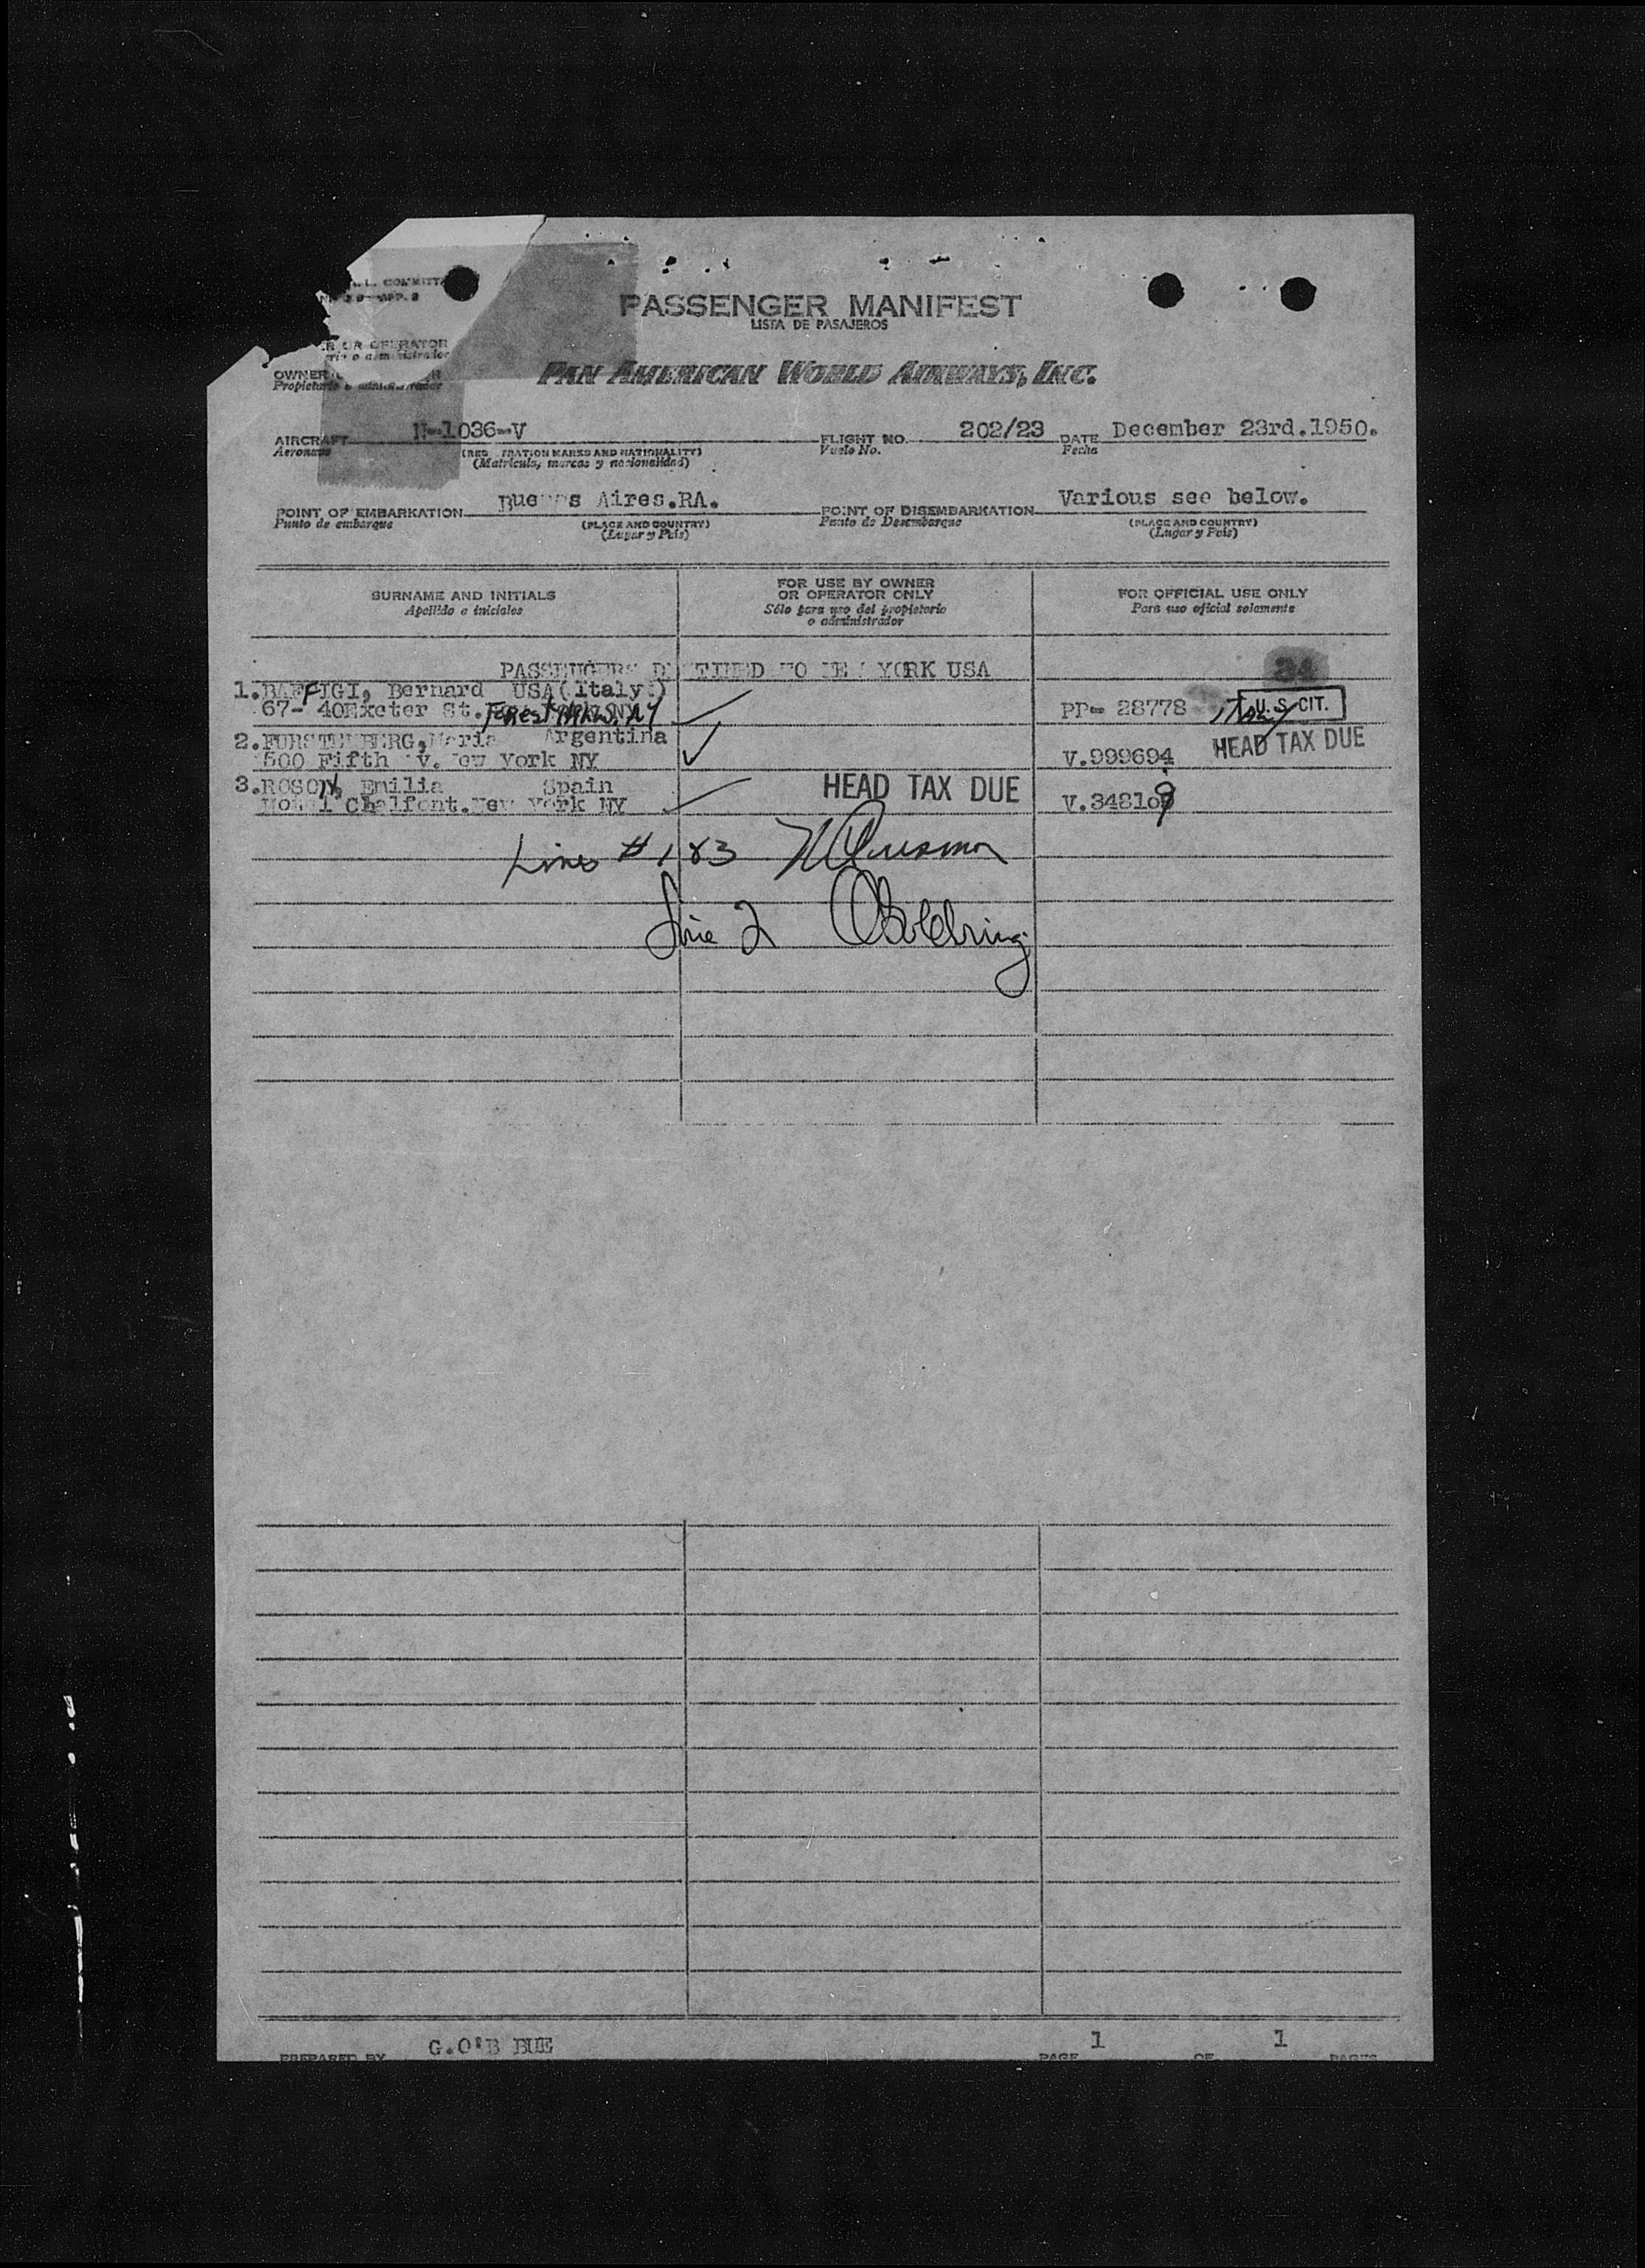 A.L. COMMITT
APP. 2
PASSENGER MANIFEST
LISTA DE PASAJEROS
OR OPERATOR
o administrador
OWNER
Propietario o administrador
PAN AMERICAN WORLD AIRWAYS, INC.
AIRCRAFT N-1036-V FLIGHT NO. 202/23 DATE December 23rd.1950.
Aeronave (REG TRATION MARKS AND NATIONALITY) Vuelo No. Fecha
(Matrícula, marcas y nacionalidad)
POINT OF EMBARKATION Buenos Aires.RA. POINT OF DISEMBARKATION Various see below.
Punto de embarque (PLACE AND COUNTRY) Punto de Desembarque (PLACE AND COUNTRY)
(Lugar y País) (Lugar y País)
SURNAME AND INITIALS FOR USE BY OWNER OR OPERATOR ONLY FOR OFFICIAL USE ONLY
Apellido e iniciales Sólo para uso del propietario o administrador Para uso oficial solamente
PASSENGERS DESTINED TO NEW YORK USA 34
1.BAFFIGI, Bernard USA(Italy)
67- 40Exeter St. Forest Hills NY PP- 28778 Italy U.S. CIT.
2.FURSTENBERG, Maria Argentina
500 Fifth Av. New York NY V.999694 HEAD TAX DUE
3. Emilia Spain HEAD TAX DUE
Hotel Chalfont.New York NY V.348109
Lines # 1 & 3
Line 2
PREPARED BY G.O'B BUE PAGE 1 OF 1 PAGES